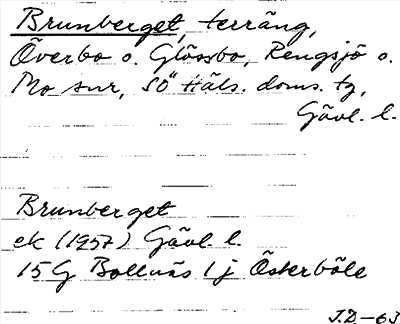 Brunberget, terräng,
Överbo o. Glössbo, Rengsjö o.
Mo snr, SÖ Häls. doms. tg,
Gävl. l.
Brunberget
ek (1957) Gävl. l.
15G Bollnäs 1j Österböle
J.D-63